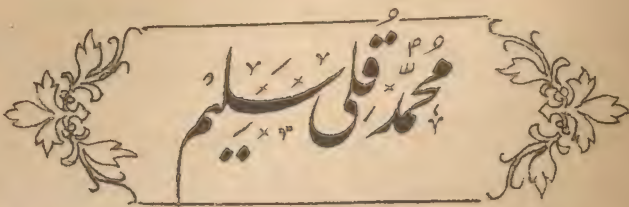 محمد قلی سلیم